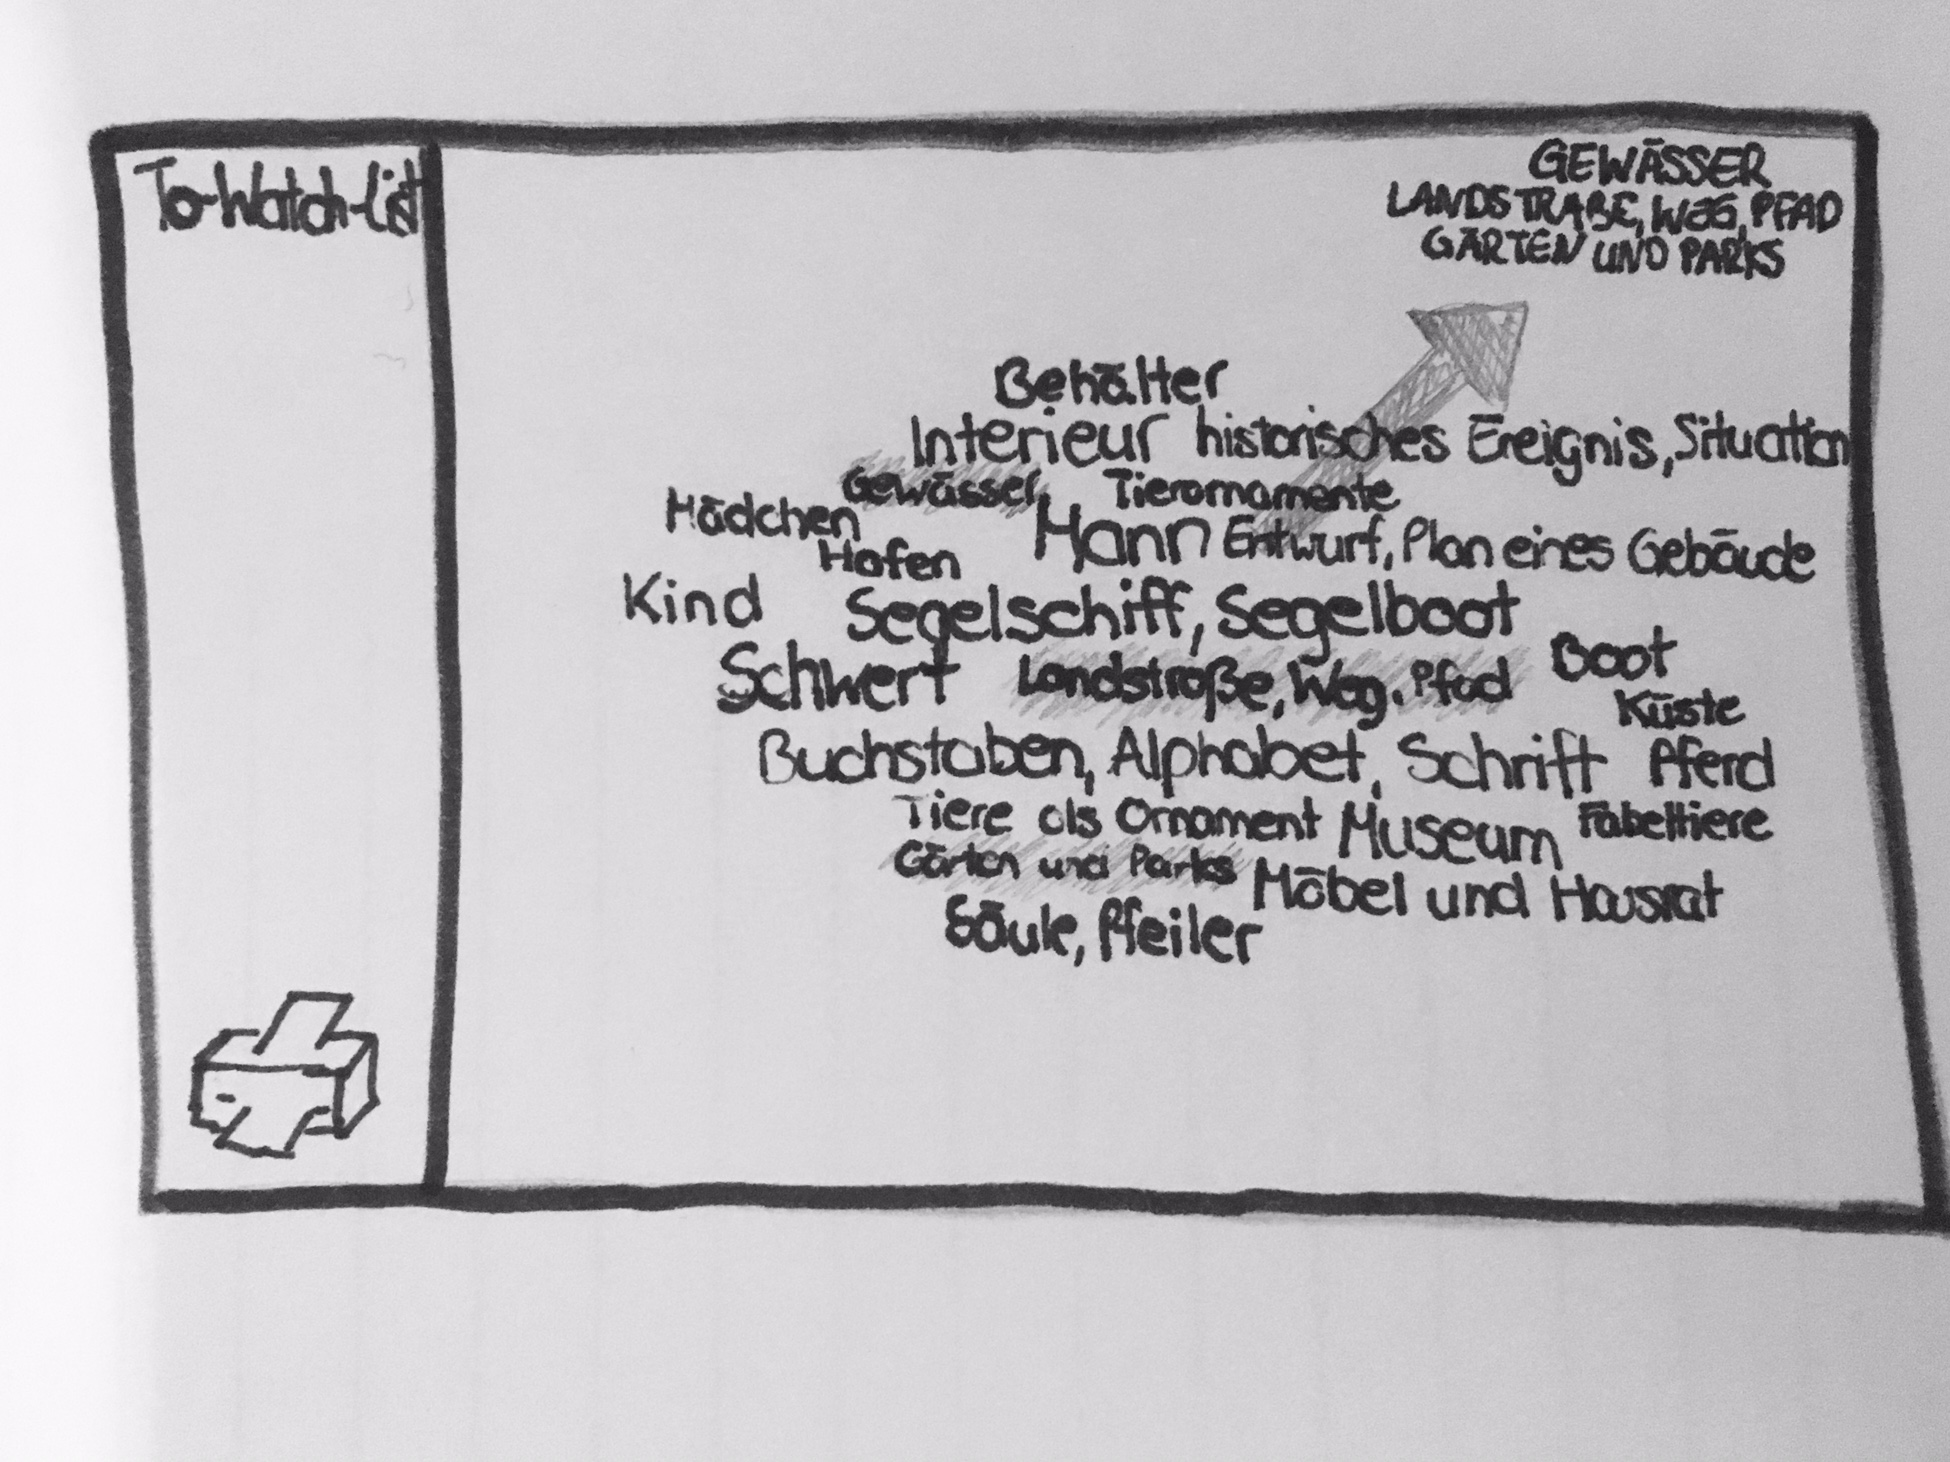 To-Watch-List
GEWÄSSER
LANDSTRAßE, WEG, PFAD
GÄRTEN UND PARKS
Behälter
Interieur historisches Ereignis, Situation
Gewässer, Tierornamente
Mädchen Mann Entwurf, Plan eines Gebäude
Hafen
Kind Segelschiff, Segelboot
Schwert Landstraße, Weg, Pfad Boot
Küste
Buchstaben, Alphabet, Schrift Pferd
Tiere als Ornament Museum Fabeltiere
Gärten und Parks Möbel und Hausrat
Säule, Pfeiler